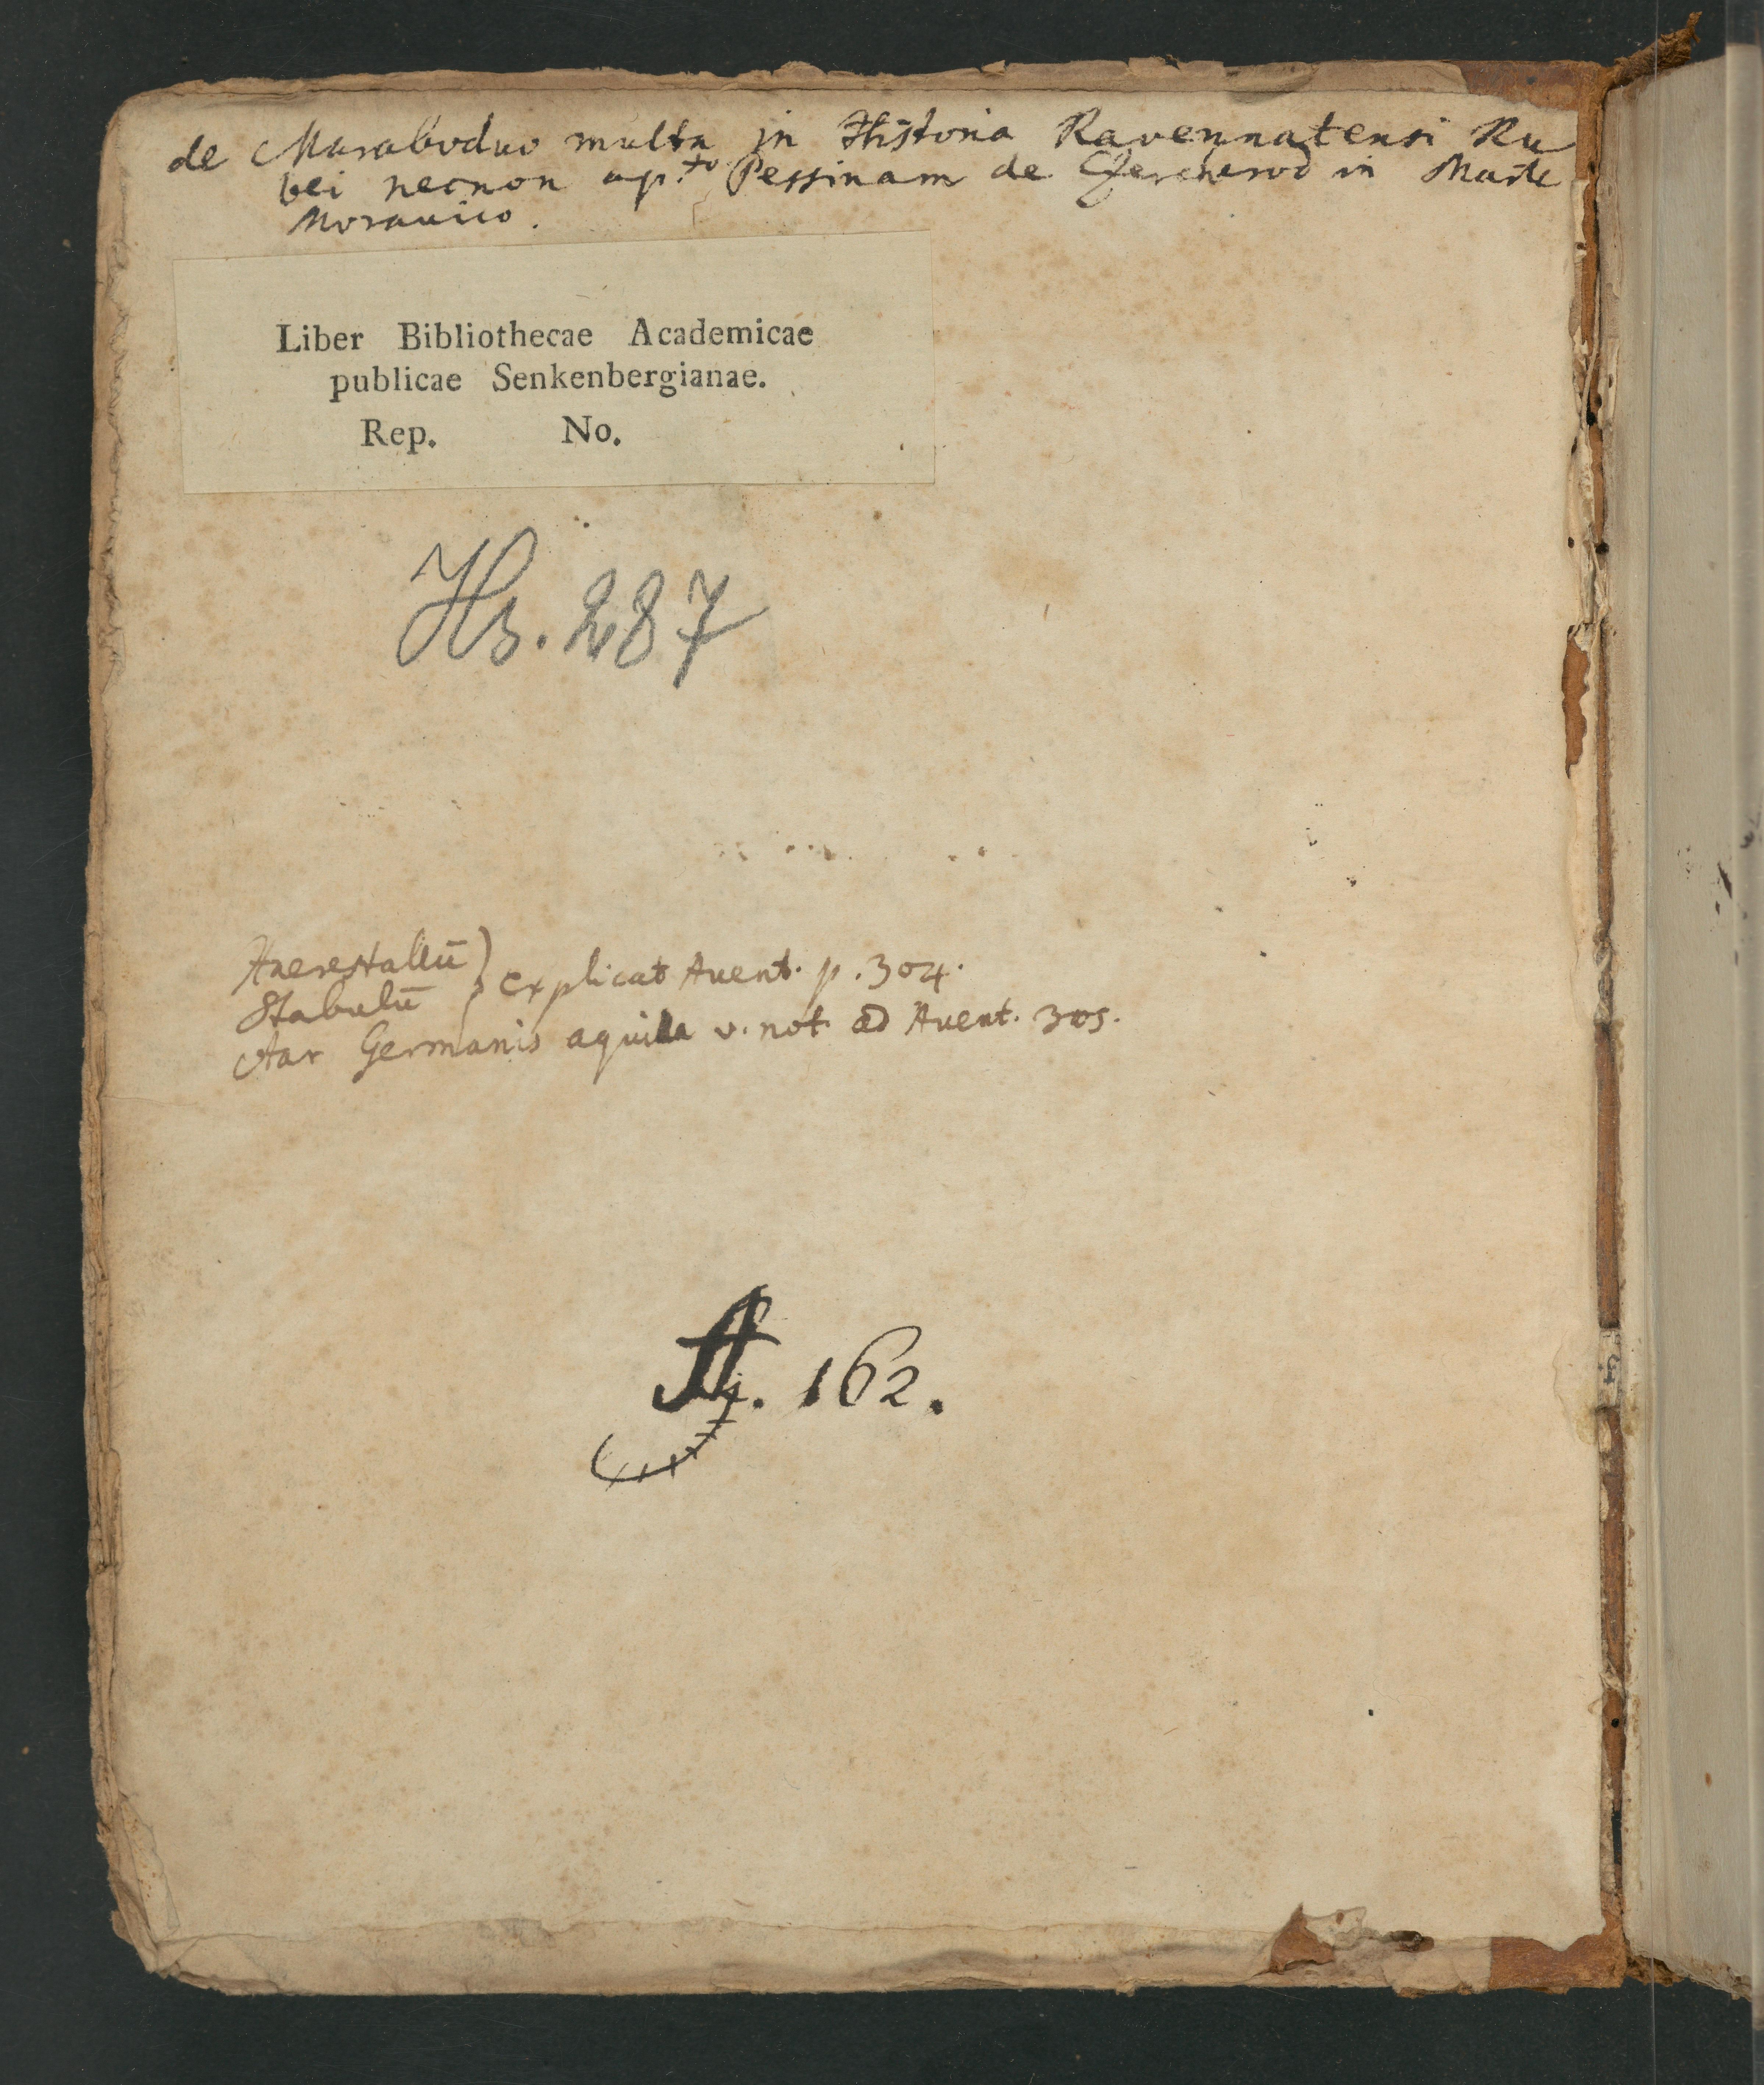 de Maraboduo multa in Historia Ravennatensi Ru
bei necnon ap. Pessinam de Czerchorod in Marte
Moravico.
Liber Bibliothecae Academicae
publicae Senkenbergianae.
Rep. No.
Hs. 287
Haerestallū
Stabulū } explicat Auent. p. 304.
Aar Germanis aquila v. not. ad Auent. 305.
162.